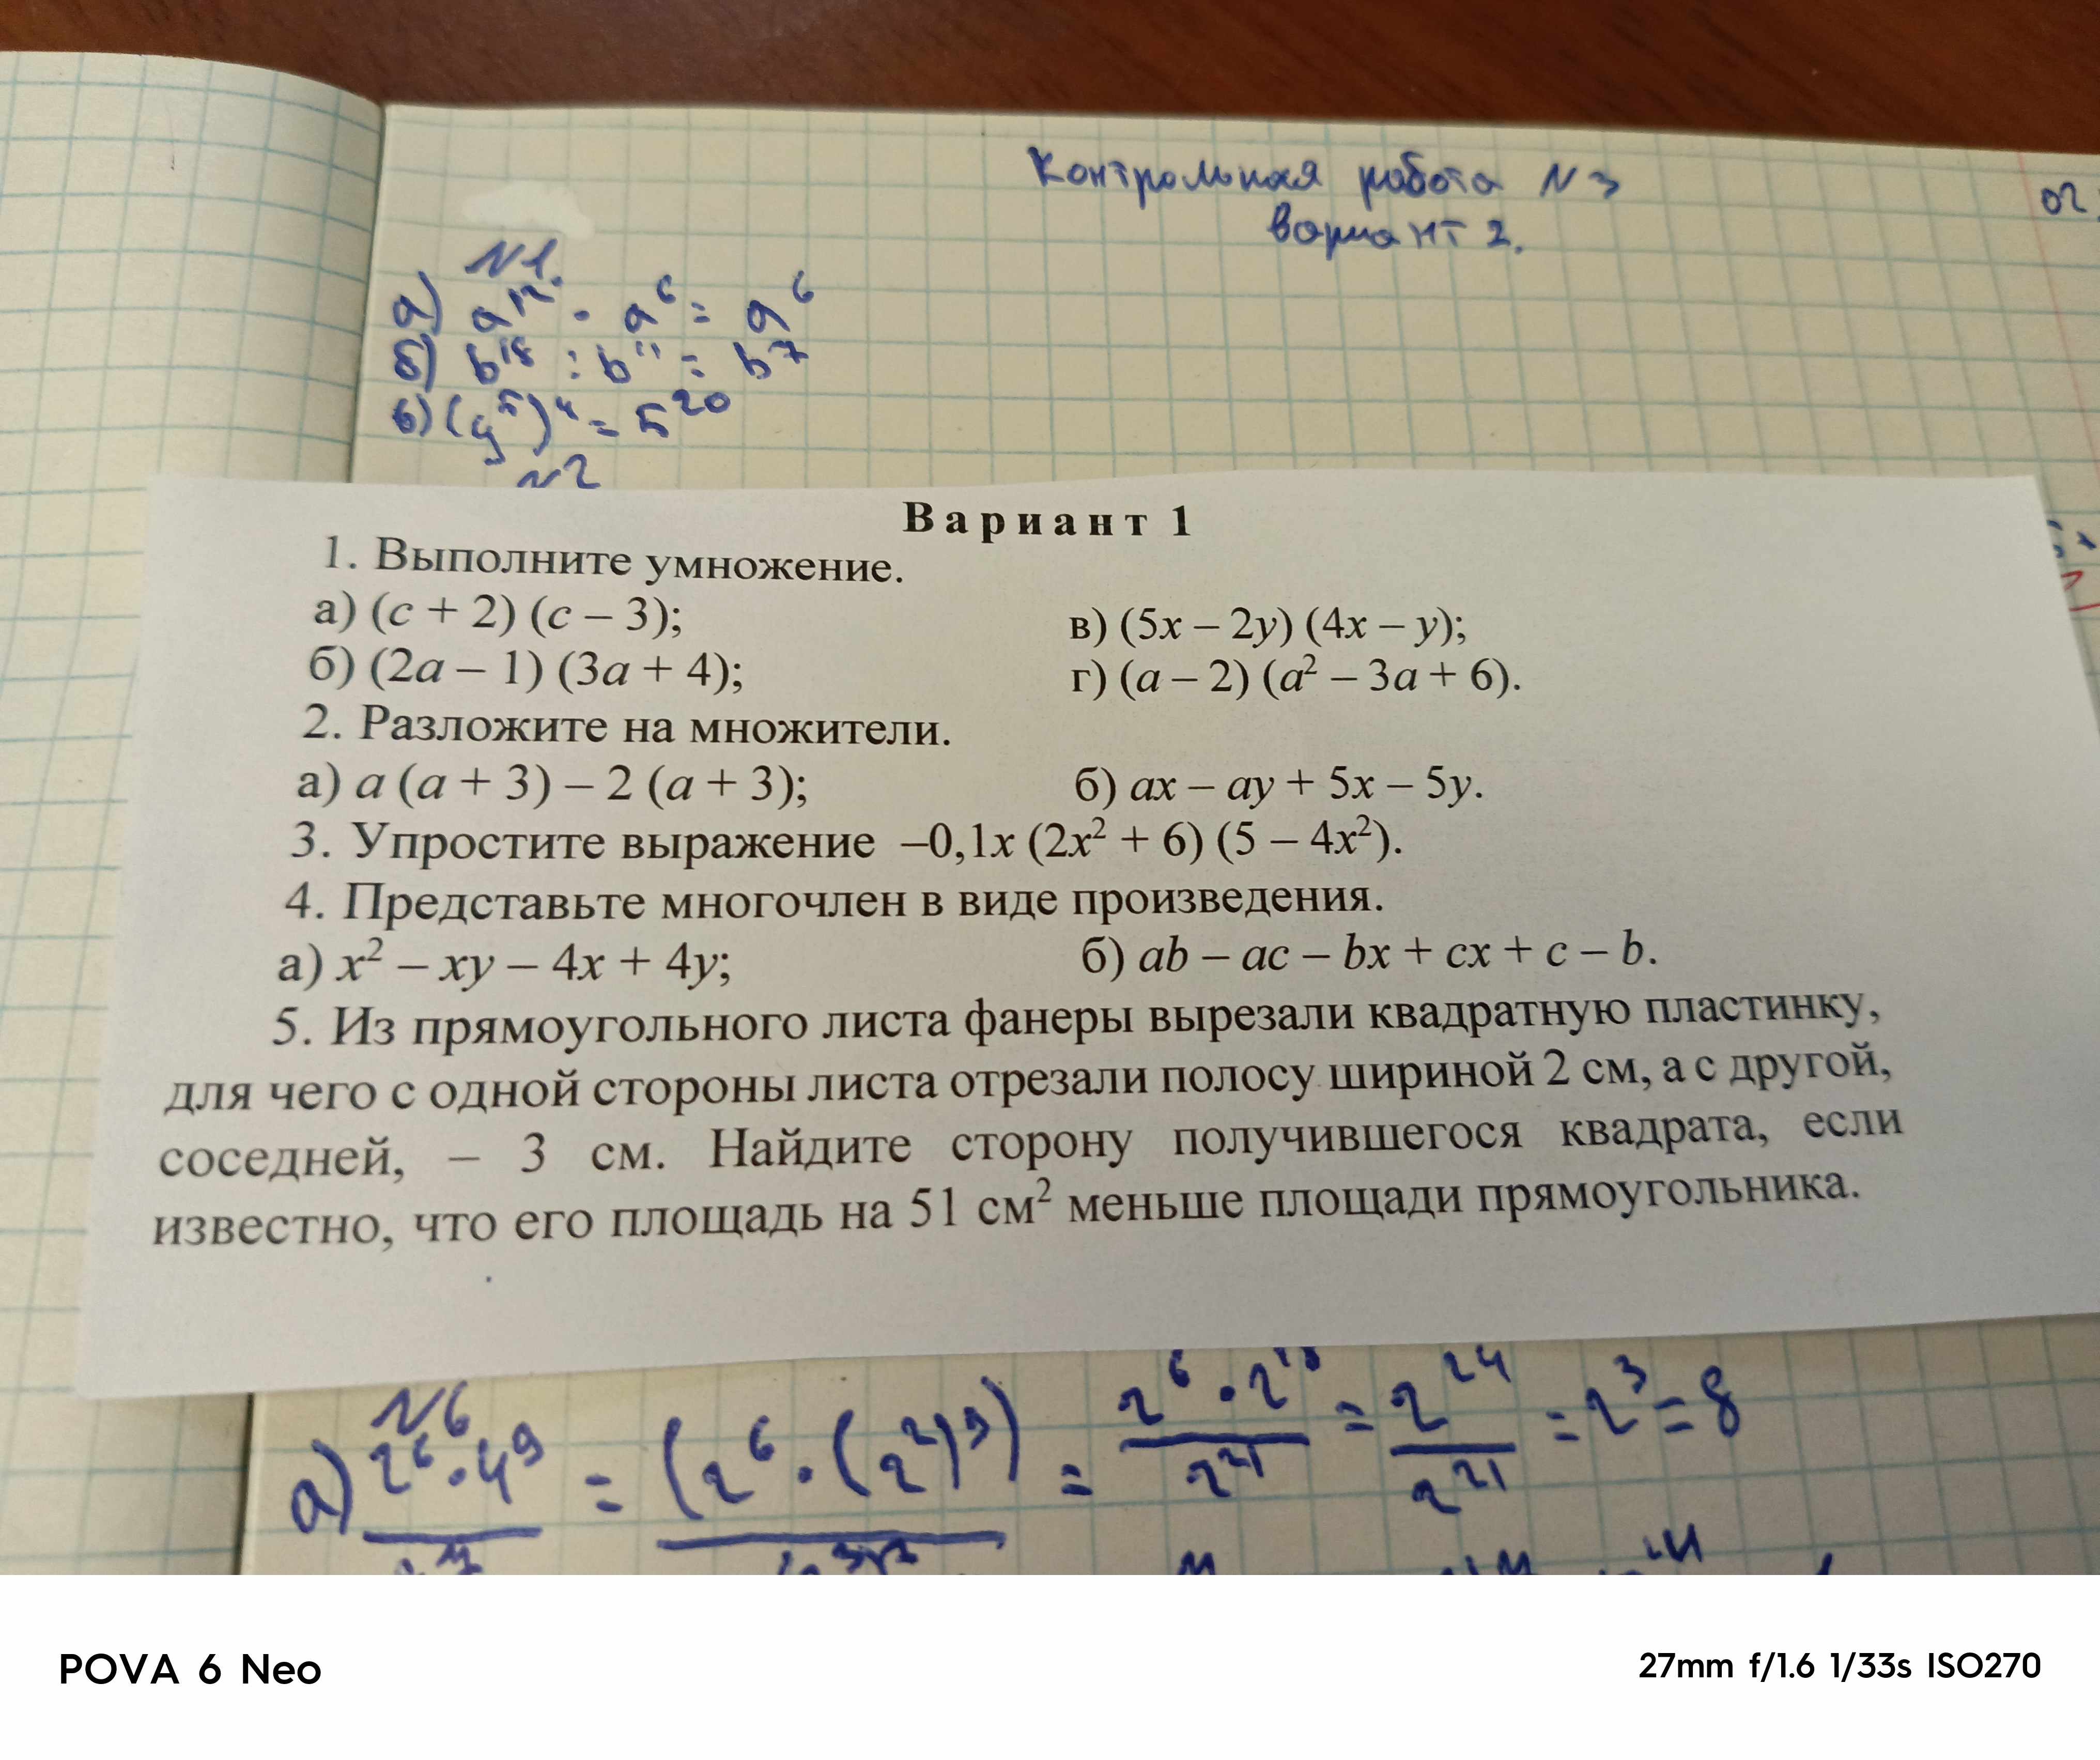 Контрольная работа N 3
02
Вариант 2.
N1.
а) a¹² · a⁶ = a⁶
б) b¹⁸ : b¹¹ = b⁷
в) (y⁵)⁴ = 5²⁰
N2
Вариант 1
1. Выполните умножение.
а) (c + 2) (c – 3); в) (5x – 2y) (4x – y);
б) (2a – 1) (3a + 4); г) (a – 2) (a² – 3a + 6).
2. Разложите на множители.
а) a (a + 3) – 2 (a + 3); б) ax – ay + 5x – 5y.
3. Упростите выражение –0,1x (2x² + 6) (5 – 4x²).
4. Представьте многочлен в виде произведения.
а) x² – xy – 4x + 4y; б) ab – ac – bx + cx + c – b.
5. Из прямоугольного листа фанеры вырезали квадратную пластинку,
для чего с одной стороны листа отрезали полосу шириной 2 см, а с другой,
соседней, – 3 см. Найдите сторону получившегося квадрата, если
известно, что его площадь на 51 см² меньше площади прямоугольника.
N6
а) 2⁶ · 4⁹ = (2⁶ · (2²)⁹) = 2⁶ · 2¹⁸ / 2²¹ = 2²⁴ / 2²¹ = 2³ = 8
POVA 6 Neo
27mm f/1.6 1/33s ISO270